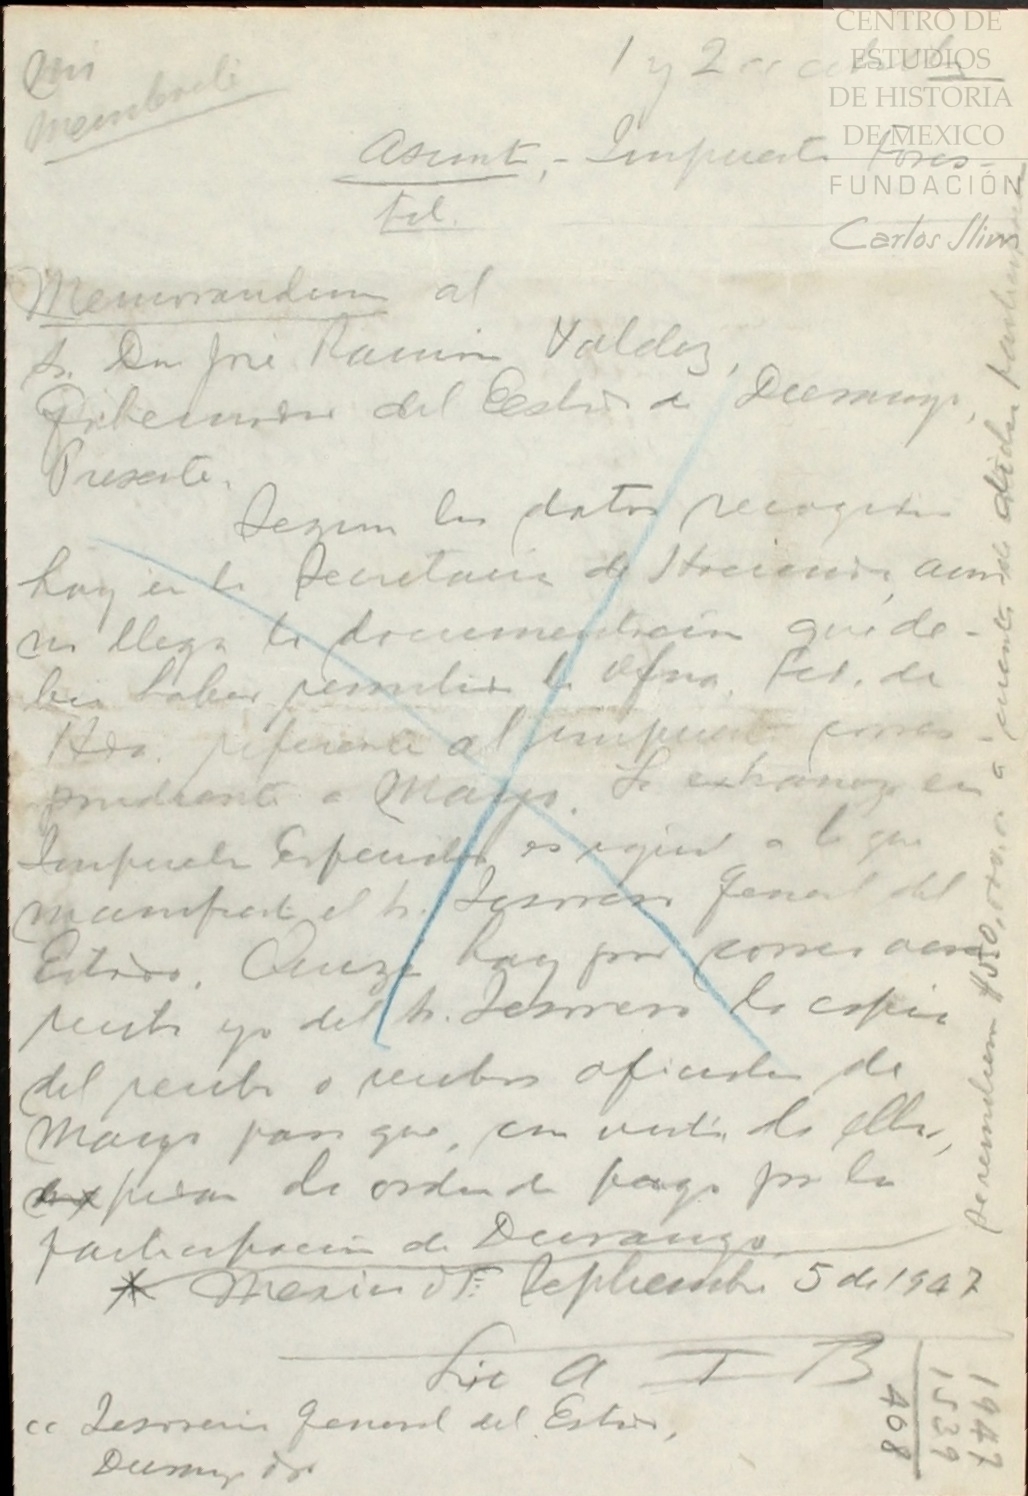 Sin
Membrete
1 y 2
CENTRO DE
ESTUDIOS
DE HISTORIA
DE MEXICO
FUNDACIÓN
Carlos Slim
Asunto, - Impuesto Fores-
tal.
Memorandum al
Sr. Dn José Ramón Valdez,
Gobernador del Estado de Durango,
Presente.
Segun los datos recogidos
hoy en la Secretaria de Hacienda, aun
no llega la documentación que de-
bio haber remitido la Ofna. Fed. de
Hda. referente al impuesto corres-
pondiente a Mayo. Lo en
Impuestos Especiales es igual a lo que
manifiesta el Sr. Tesorero General del
Estado. Quiza hoy por correo aereo
reciba yo del Sr. Tesorero la copia
del recibo o recibos oficiales de
Mayo para que, con vista de ellos,
expidan la orden de pago por la
participación de Durango
* Mexico D.F. Septiembre 5 de 1947
Lic A I B
cc Tesoreria General del Estado,
Durango Dgo
Se remitieron $50,000.00 a cuenta de dicha participación
1947
1539
408